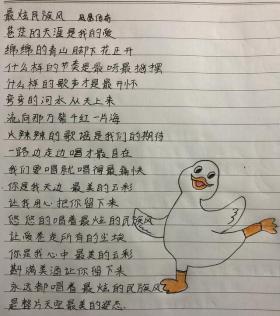 最炫民族风 凤凰传奇
苍茫的天涯是我的爱
绵绵的青山脚下花正开
什么样的节奏是最呀最摇摆
什么样的歌声才是最开怀
弯弯的河水从天上来
流向那万紫千红一片海
火辣辣的歌谣是我们的期待
一路边走边唱才最自在
我们要唱就唱得最痛快
你是我天边 最美的云彩
让我用心把你留下来
悠悠的唱着最炫的民族风
让爱卷走所有的尘埃
你是我心中 最美的云彩
斟满美酒让你留下来
永远都唱着最炫的民族风
是整片天空最美的姿态